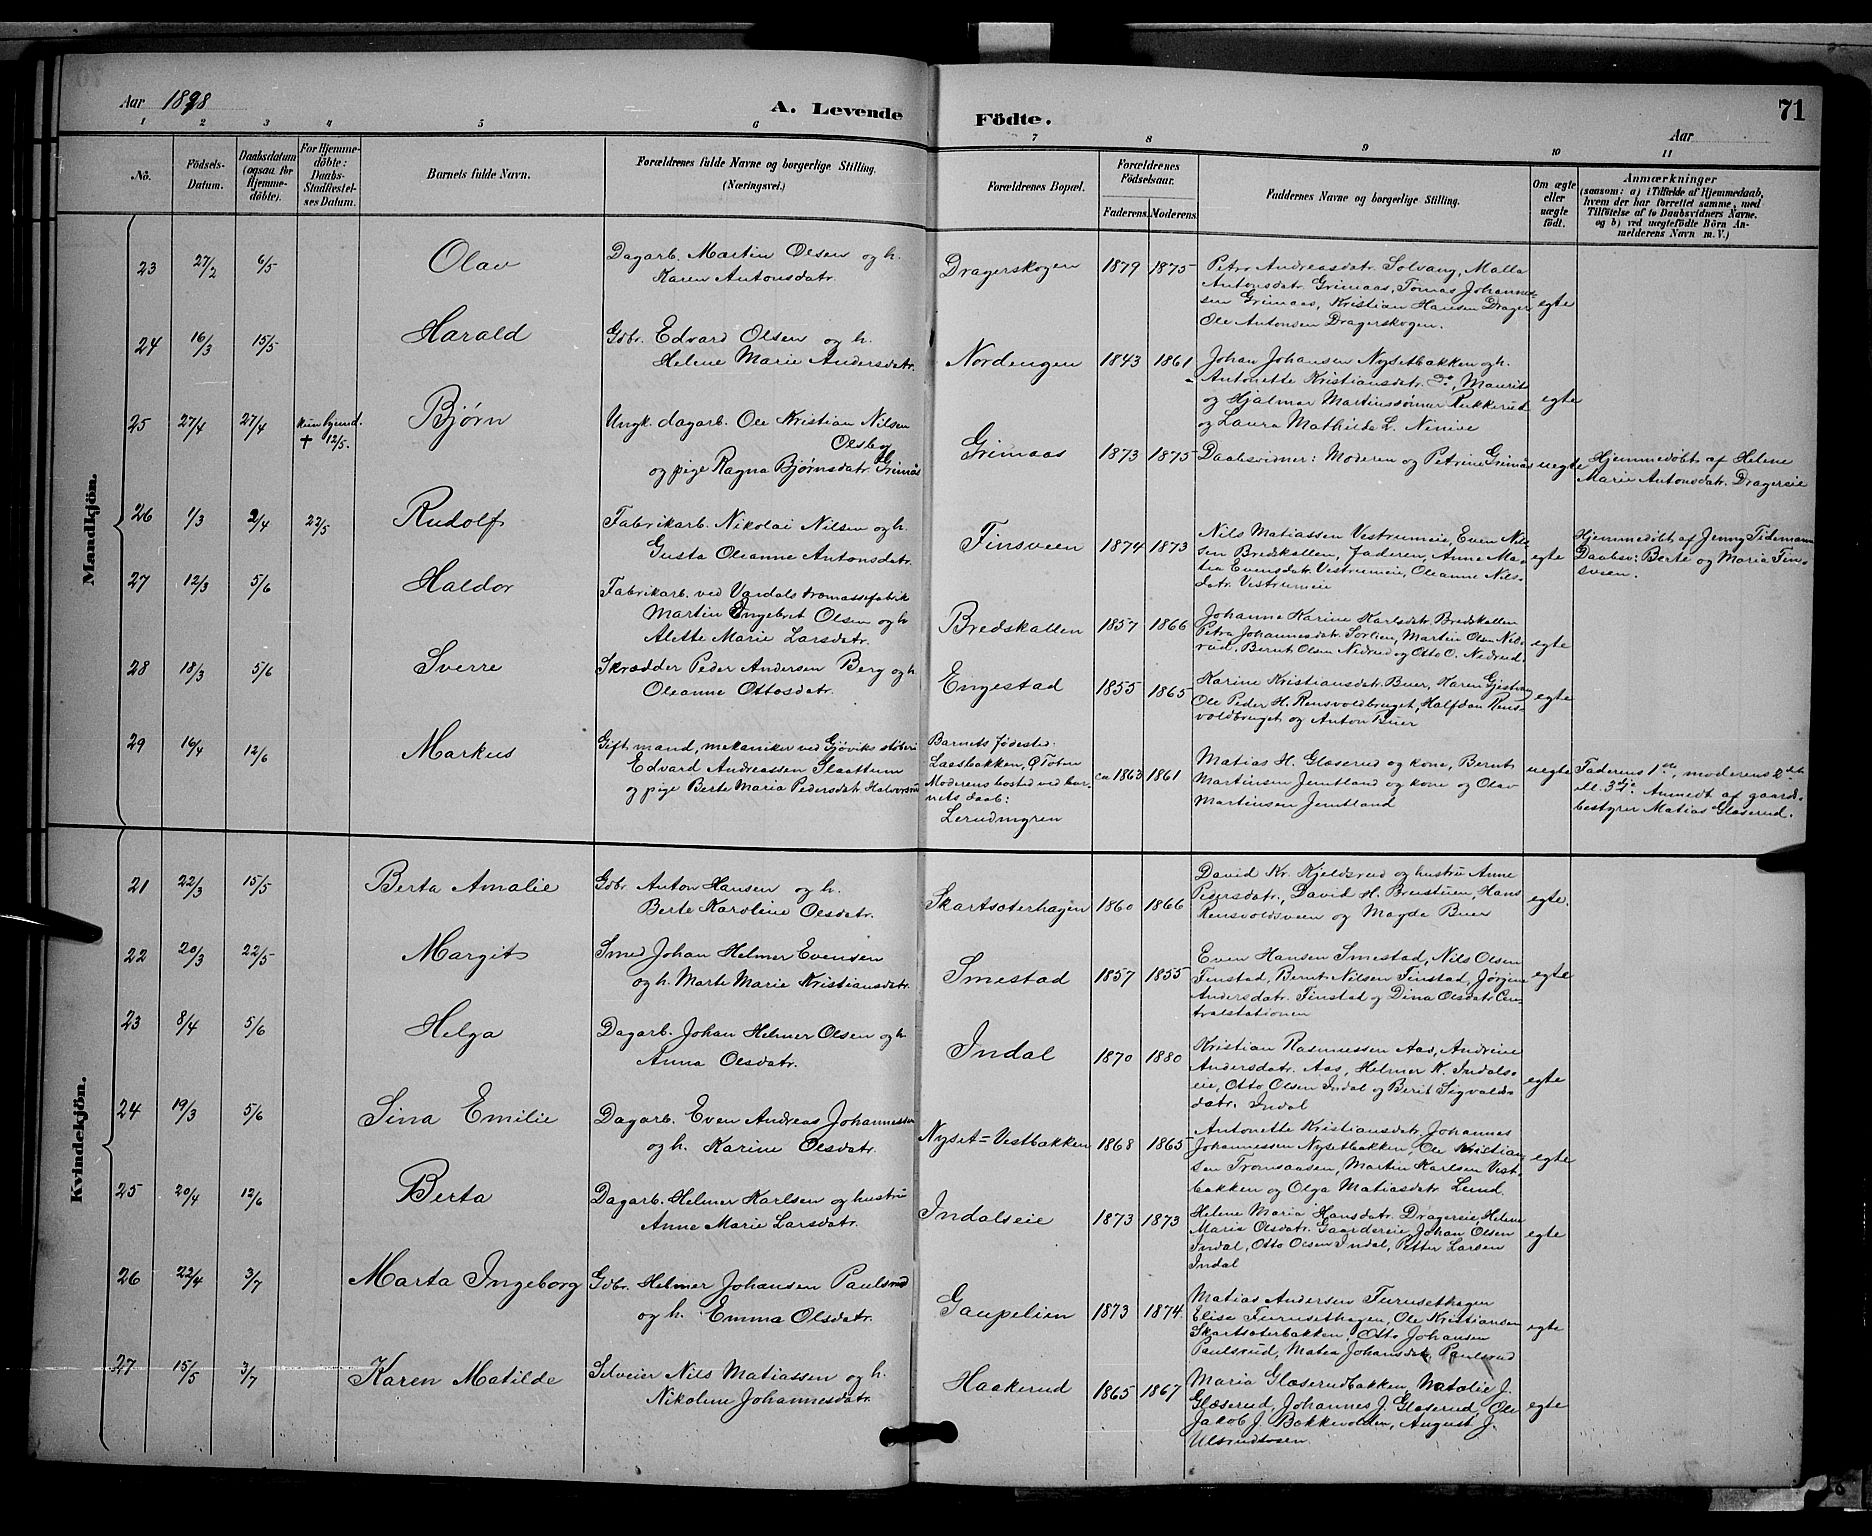 Aar 1898
A. Levende Födte.
71
Aar
1 2 3 4 5 6 7 8 9 10 11
No.
Födsels-Datum.
Daabsdatum (ogsaa for Hjemmedöbte).
For Hjemmedöbte: Daabs-Stadfæstelses Datum.
Barnets fulde Navn.
Forældrenes fulde Navne og borgerlige Stilling. (Næringsvei.)
Forældrenes Bopæl.
Forældrenes Födselsaar.
Faderens. Moderens.
Faddernes Navne og borgerlige Stilling.
Om ægte eller uægte födt.
Anmærkninger
(saasom: a) i Tilfælde af Hjemmedaab,
hvem der har forrettet samme, med
Tilföielse af to Daabsvidners Navne.
og b) ved uægtefödte Börn Anmelderens Navn m. V.)
Mandkjön.
23 27/2 6/5 Olav
Dagarb. Martin Olsen og h.
Karen Antonsdatr.
Dragerskogen 1879 1875
Petra Andreasdatr. Solvang, Malla
Antonsdatr. Grimaas, Tomas Johannes-
sen Grimaas, Kristian Hansen Drager
Ole Antonsen Dragerskogen.
egte
24 16/3 15/5 Harald
Gdbr. Edvard Olsen og h.
Helene Marie Andersdatr.
Nordengen 1843 1861
Johan Johansen Nysetbakken og h.
Antonette Kristiansdatr. do, Maurits
og Hjalmar Martinssönner Rukkerud
og Laura Mathilde L. Ninive
egte
25 27/4 27/4 kun hjemd. + 12/5. Bjørn
Ungk. dagarb. Ole Kristian Nilsen
Olsby
og pige Ragna Bjørnsdatr. Grimås
Grimaas 1873 1875
Daabsvidner: Moderen og Petrine Grimås
uegte
Hjemmedöbt af Helene
Marie Antonsdatr. Dragereie
26 1/3 2/4 22/5 Rudolf
Fabrikarb. Nikolai Nilsen og h.
Gusta Oleanne Antonsdatr.
Finsveen 1874 1873
Nils Matiassen Vestrumeie, Even Nil-
sen Bredskallen, faderen, Anne Ma-
tea Evensdatr. Vestrumeie, Oleanne Nils-
datr. Vestrumeie
egte
Hjemmedöbt af Jenny Tidemann
Daabsv: Berte og Maria Fins-
veen.
27 12/3 5/6 Haldor
Fabrikarb. ved Vardals træmassefabrik
Martin Engebret Olsen og h.
Alette Marie Larsdatr.
Bredskallen 1857 1866
Johanne Karine Karlsdatr. Bredskallen
Petra Johannesdatr. Sorlien, Martin Olsen Ned-
rud, Bernt Olsen Nedrud og Otto O. Nedrud.
egte
28 18/3 5/6 Sverre
Skrædder Peder Andersen Berg og h.
Oleanne Ottosdatr.
Engestad 1855 1865
Karine Kristiansdatr. Buer, Karen Gjestvang
Ole Peder H. Rensvoldbruget, Halfdan Rens-
voldbruget og Anton Buer
egte
29 16/4 12/6 Markus
Gift mand, mekaniker ved Gjöviks støberi
Edvard Andreassen Slaattum
og pige Berte Maria Pedersdatr. Halvorsrud
Barnets fødested:
Laasbakken, Ø Toten
Moderens bosted ved bar-
nets daab:
Lerudmyren
ca 1863 1861
Matias H. Glæserud og kone, Bernt
Martinsen Jemtland og kone og Olav
Martinsen Jemtland
uegte
Faderens 1ste, moderens 2det
ell. 3die. Anmeldt af gaards-
bestyrer Matias Glæserud.
Kvindekjön.
21 22/3 15/5 Berta Amalie
Gdbr. Anton Hansen og h.
Berte Karoline Olsdatr.
Skartsæterhagen 1860 1866
David Kr. Kjeldsrud og hustru Anne
Pedersdatr., David H. Brustuen, Hans
Rensvoldsveen og Magda Buer
egte.
22 20/3 22/5 Margit
Smed Johan Helmer Evensen
og h. Marte Marie Kristiansdatr.
Smestad 1857 1855
Even Hansen Smestad, Nils Olsen
Finstad, Bernt Nilsen Finstad, Jørgine
Andersdatr. Finstad og Dina Olsdatr. Cen-
tralstationen
egte
23 8/4 5/6 Helga
Dagarb. Johan Helmer Olsen og h.
Anna Olsdatr.
Indal 1870 1880
Kristian Rasmussen Aas, Andrine
Andersdatr. Aas, Helmer K. Indals-
eie, Otto Olsen Indal og Berit Sigvalds-
datr. Indal
egte
24 19/3 5/6 Sina Emilie
Dagarb. Even Andreas Johannessen
og h. Karine Olsdatr.
Nyset=Vestbakken 1868 1865
Antonette Kristiansdatr. Johannes
Johannessen Nysetbakken, Ole Kristian-
sen Tromsaasen, Martin Karlsen Vest-
bakken og Olga Matiasdatr. Lund.
egte
25 20/4 12/6 Berta
Dagarb. Helmer Karlsen og hustru
Anne Marie Larsdatr.
Indalseie 1873 1873
Helene Maria Hansdatr. Dragereie, Helene
Maria Olsdatr. Gaardereie, Johan Olsen
Indal, Otto Olsen Indal, Petter Larsen
Indal
egte
26 22/4 3/7 Marta Ingeborg
Gdbr. Helmer Johansen Paulsrud
og h. Emma Olsdatr.
Gaupelien 1873 1874.
Matias Andersen Furusethagen
Elise Furusethagen, Ole Kristiansen
Skartsæterbakken, Otto Johansen
Paulsrud, Matea Johansdatr. Paulsrud
egte
27 15/5 3/7 Karen Matilde
Selveier Nils Matiassen og h.
Nikoline Johannesdatr.
Haakerud 1865 1867
Maria Glæserudbakken, Natalie J.
Glæserud, Johannes J. Glæserud, Ole
Jakob J. Bakkevolden, August J.
Ulsrudtosen
egte